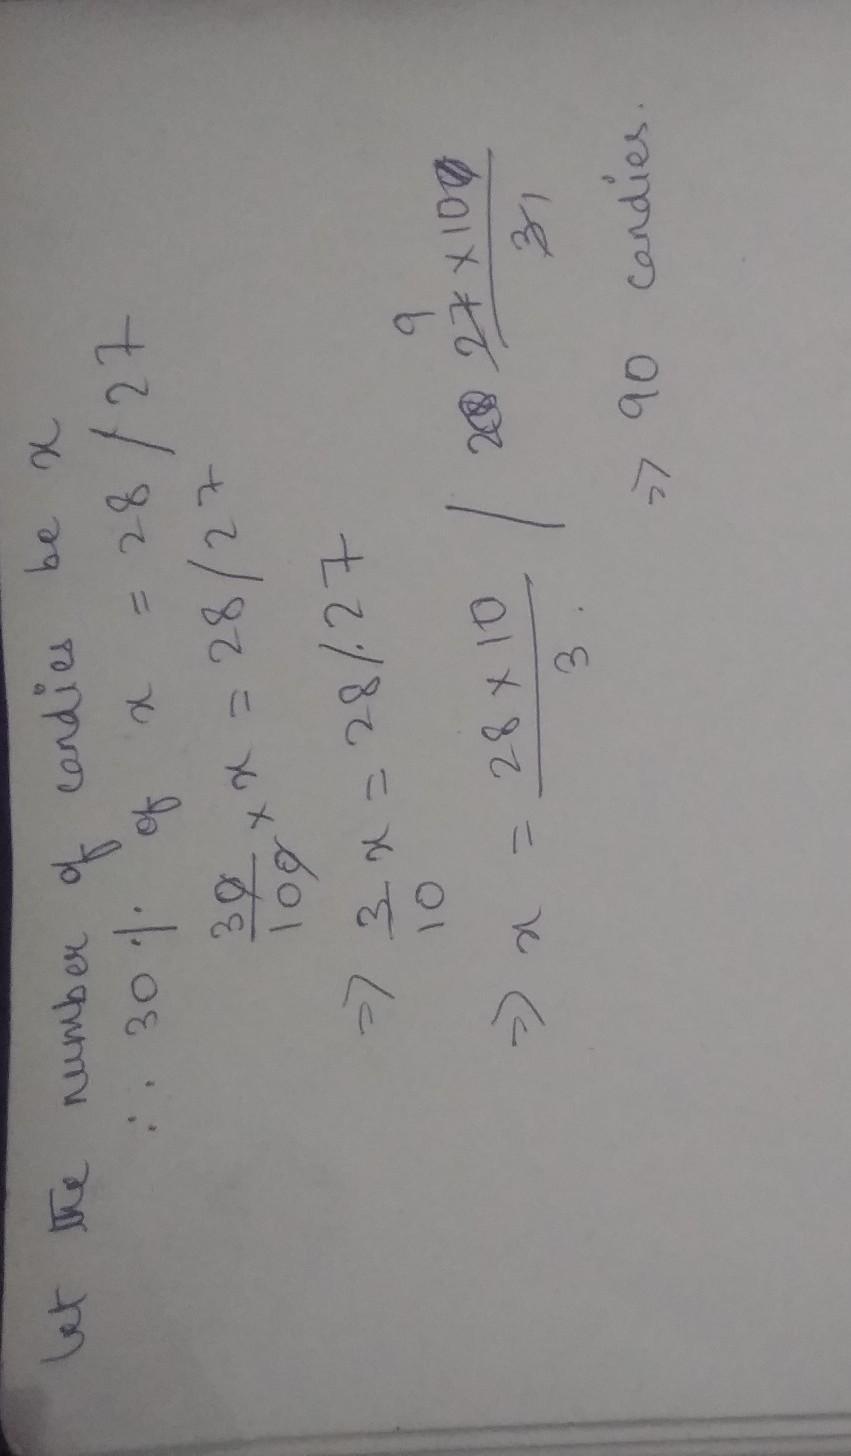 Let the number of candies be x
∴ 30% of x = 28/27
30/100 × x = 28/27
⇒ 3/10 x = 28/27
⇒ x = 28 × 10/3 / 9 27 × 100/3 1
⇒ 90 candies.